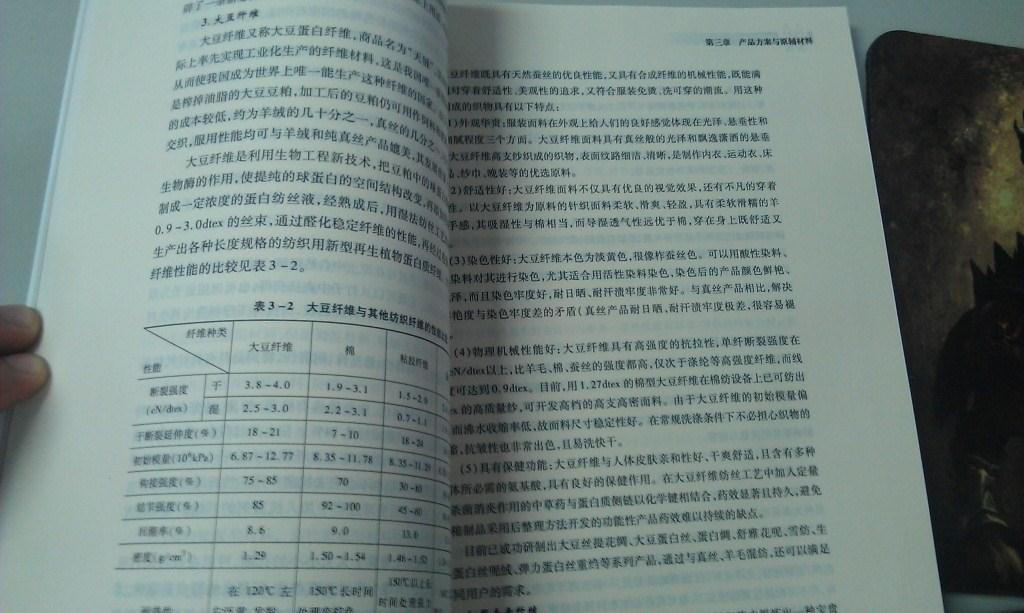 3.大豆纤维
大豆纤维又称大豆蛋白纤维,商品名为“天
际上率先实现工业化生产的纤维材料,这是我国唯
从而使我国成为世界上唯一能生产这种纤维的国家
是榨掉油脂的大豆豆粕,加工后的豆粕仍可用作饲料
的成本较低,约为羊绒的几十分之一,真丝的几分之
交织,服用性能均可与羊绒和纯真丝产品媲美,其发展
大豆纤维是利用生物工程新技术,把豆粕中的球
生物酶的作用,使提纯的球蛋白的空间结构改变,再
制成一定浓度的蛋白纺丝液,经熟成后,用湿法纺丝工
0.9~3.0dtex的丝束,通过醛化稳定纤维的性能,再经过
生产出各种长度规格的纺织用新型再生植物蛋白质纤维
纤维性能的比较见表3-2。
表3-2 大豆纤维与其他纺织纤维的性能
纤维种类
性能
大豆纤维 棉 粘胶纤维
断裂强度(cN/dtex) 干 3.8~4.0 1.9~3.1 1.5~2.0
湿 2.5~3.0 2.2~3.1 0.7~1.1
干断裂延伸度(%) 18~21 7~10 18~24
初始模量(10⁶kPa) 6.87~12.77 8.35~11.78 8.35~11.29
钩接强度(%) 75~85 70 30~60
结节强度(%) 85 92~100 45~60
回潮率(%) 8.6 9.0 13.0
密度(g/cm³) 1.29 1.50~1.54 1.46~1.52
在120℃左 150℃长时间 150℃以上长
时间处理强力
第三章 产品方案与原辅材料
豆纤维既具有天然蚕丝的优良性能,又具有合成纤维的机械性能,既能满
对穿着舒适性、美观性的追求,又符合服装免烫、洗可穿的潮流。用这种
成的织物具有以下特点:
1)外观华贵:服装面料在外观上给人们的良好感觉体现在光泽、悬垂性和
腻程度三个方面。大豆纤维面料具有真丝般的光泽和飘逸潇洒的悬垂
大豆纤维高支纱织成的织物,表面纹路细洁、清晰,是制作内衣、运动衣、床
、纱巾、晚装等的优选原料。
2)舒适性好:大豆纤维面料不仅具有优良的视觉效果,还有不凡的穿着
性。以大豆纤维为原料的针织面料柔软、滑爽、轻盈,具有柔软滑糯的羊
手感,其吸湿性与棉相当,而导湿透气性远优于棉,穿在身上既舒适又
(3)染色性好:大豆纤维本色为淡黄色,很像柞蚕丝色。可以用酸性染料、
染料对其进行染色,尤其适合用活性染料染色,染色后的产品颜色鲜艳、
泽,而且染色牢度好,耐日晒、耐汗渍牢度非常好。与真丝产品相比,解决
艳度与染色牢度差的矛盾(真丝产品耐日晒、耐汗渍牢度极差,很容易褪
(4)物理机械性能好:大豆纤维具有高强度的抗拉性,单纤断裂强度在
cN/dtex以上,比羊毛、棉、蚕丝的强度都高,仅次于涤纶等高强度纤维,而线
度可达到0.9dtex。目前,用1.27dtex的棉型大豆纤维在棉纺设备上已可纺出
ex的高质量纱,可开发高档的高支高密面料。由于大豆纤维的初始模量偏
而沸水收缩率低,故面料尺寸稳定性好。在常规洗涤条件下不必担心织物的
,抗皱性也非常出色,且易洗快干。
(5)具有保健功能:大豆纤维与人体皮肤亲和性好,干爽舒适,且含有多种
体所必需的氨基酸,具有良好的保健作用。在大豆纤维纺丝工艺中加入定量
杀菌消炎作用的中草药与蛋白质侧链以化学键相结合,药效显著且持久,避免
棉制品采用后整理方法开发的功能性产品药效难以持续的缺点。
目前已成功研制出大豆丝提花绸、大豆蛋白丝、蛋白绸、舒雅花呢、雪纺、生
蛋白丝呢绒、弹力蛋白丝重绉等系列产品,通过与真丝、羊毛混纺,还可以满足
同用户的需求。